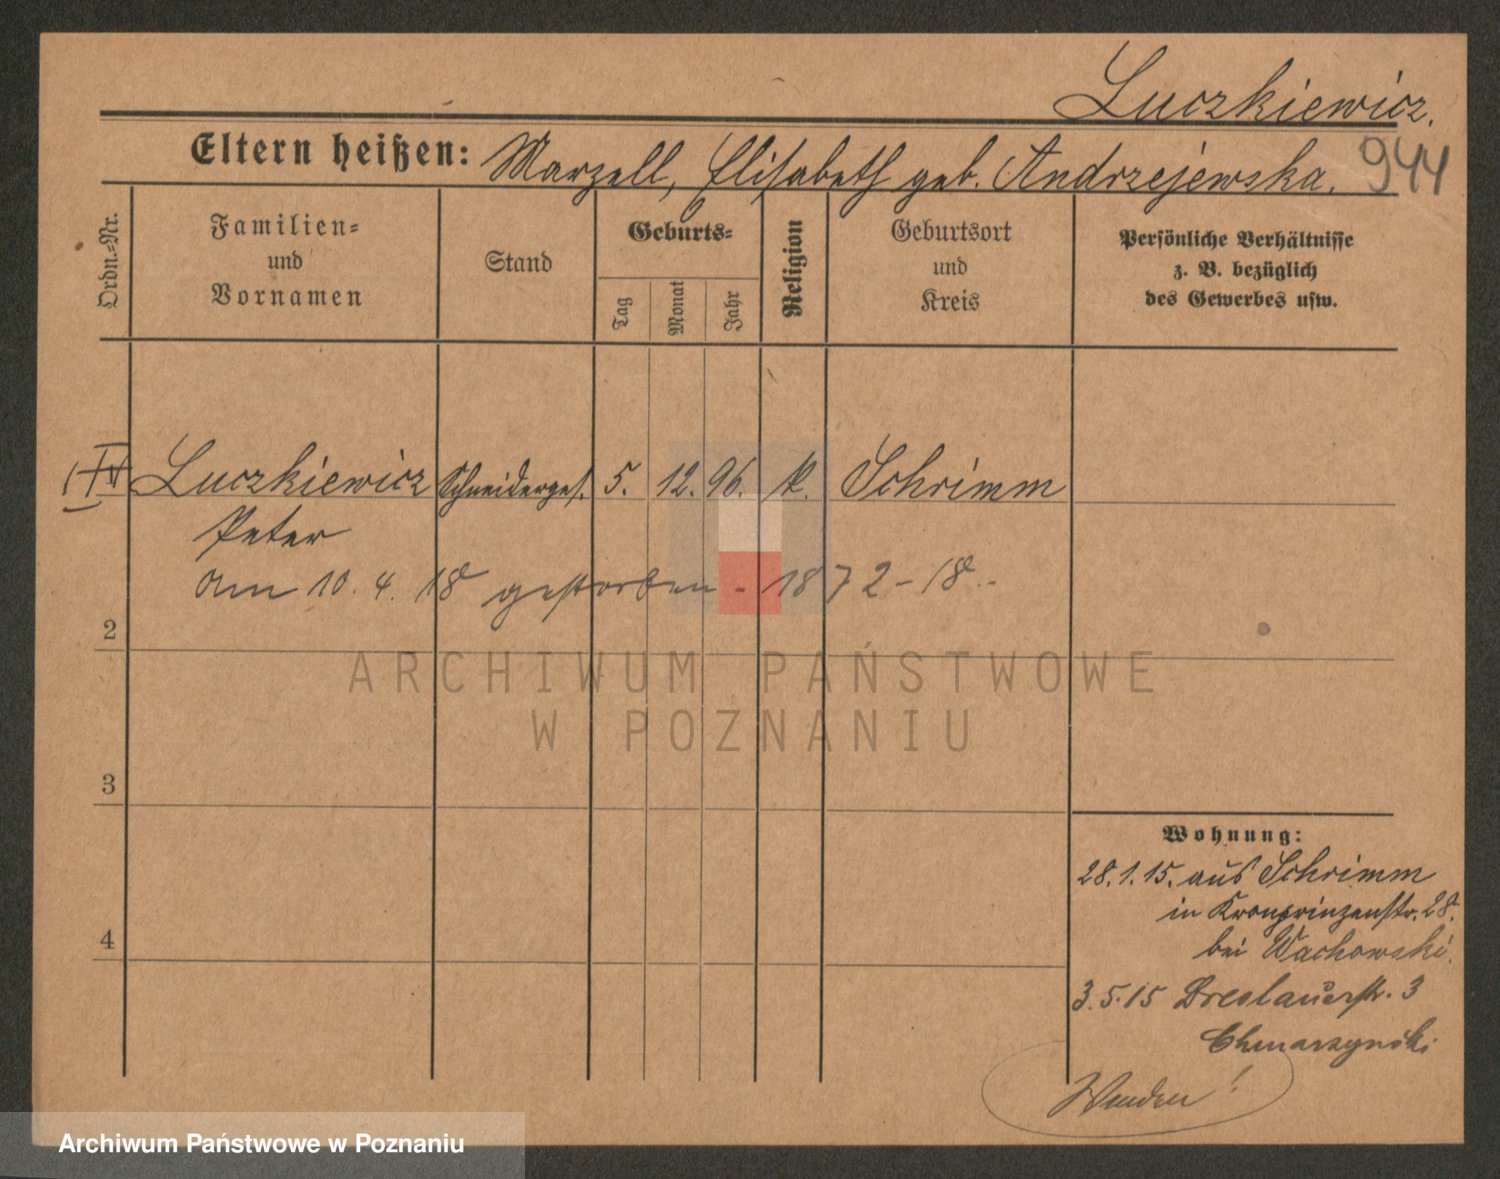 Luczkiewicz.
Eltern heißen: Marzell, Elisabeth geb. Andrzejewska. 944
Ordn.-Nr.
Familien-
und
Vornamen
Stand
Geburts-
Tag
Monat
Jahr
Religion
Geburtsort
und
Kreis
Persönliche Verhältnisse
z. B. bezüglich
des Gewerbes usw.
Luczkiewicz Schneiderges. 5. 12. 96. k. Schrimm
Peter
am 10. 4. 18 gestorben - 1872-18.
2
ARCHIWUM PAŃSTWOWE
W POZNANIU
3
Wohnung:
28.1.15. aus Schrimm
in Kronprinzenstr. 28.
bei Wachowski.
4
3.5.15 Breslauerstr. 3
Chmarzynski
Wenden!
Archiwum Państwowe w Poznaniu